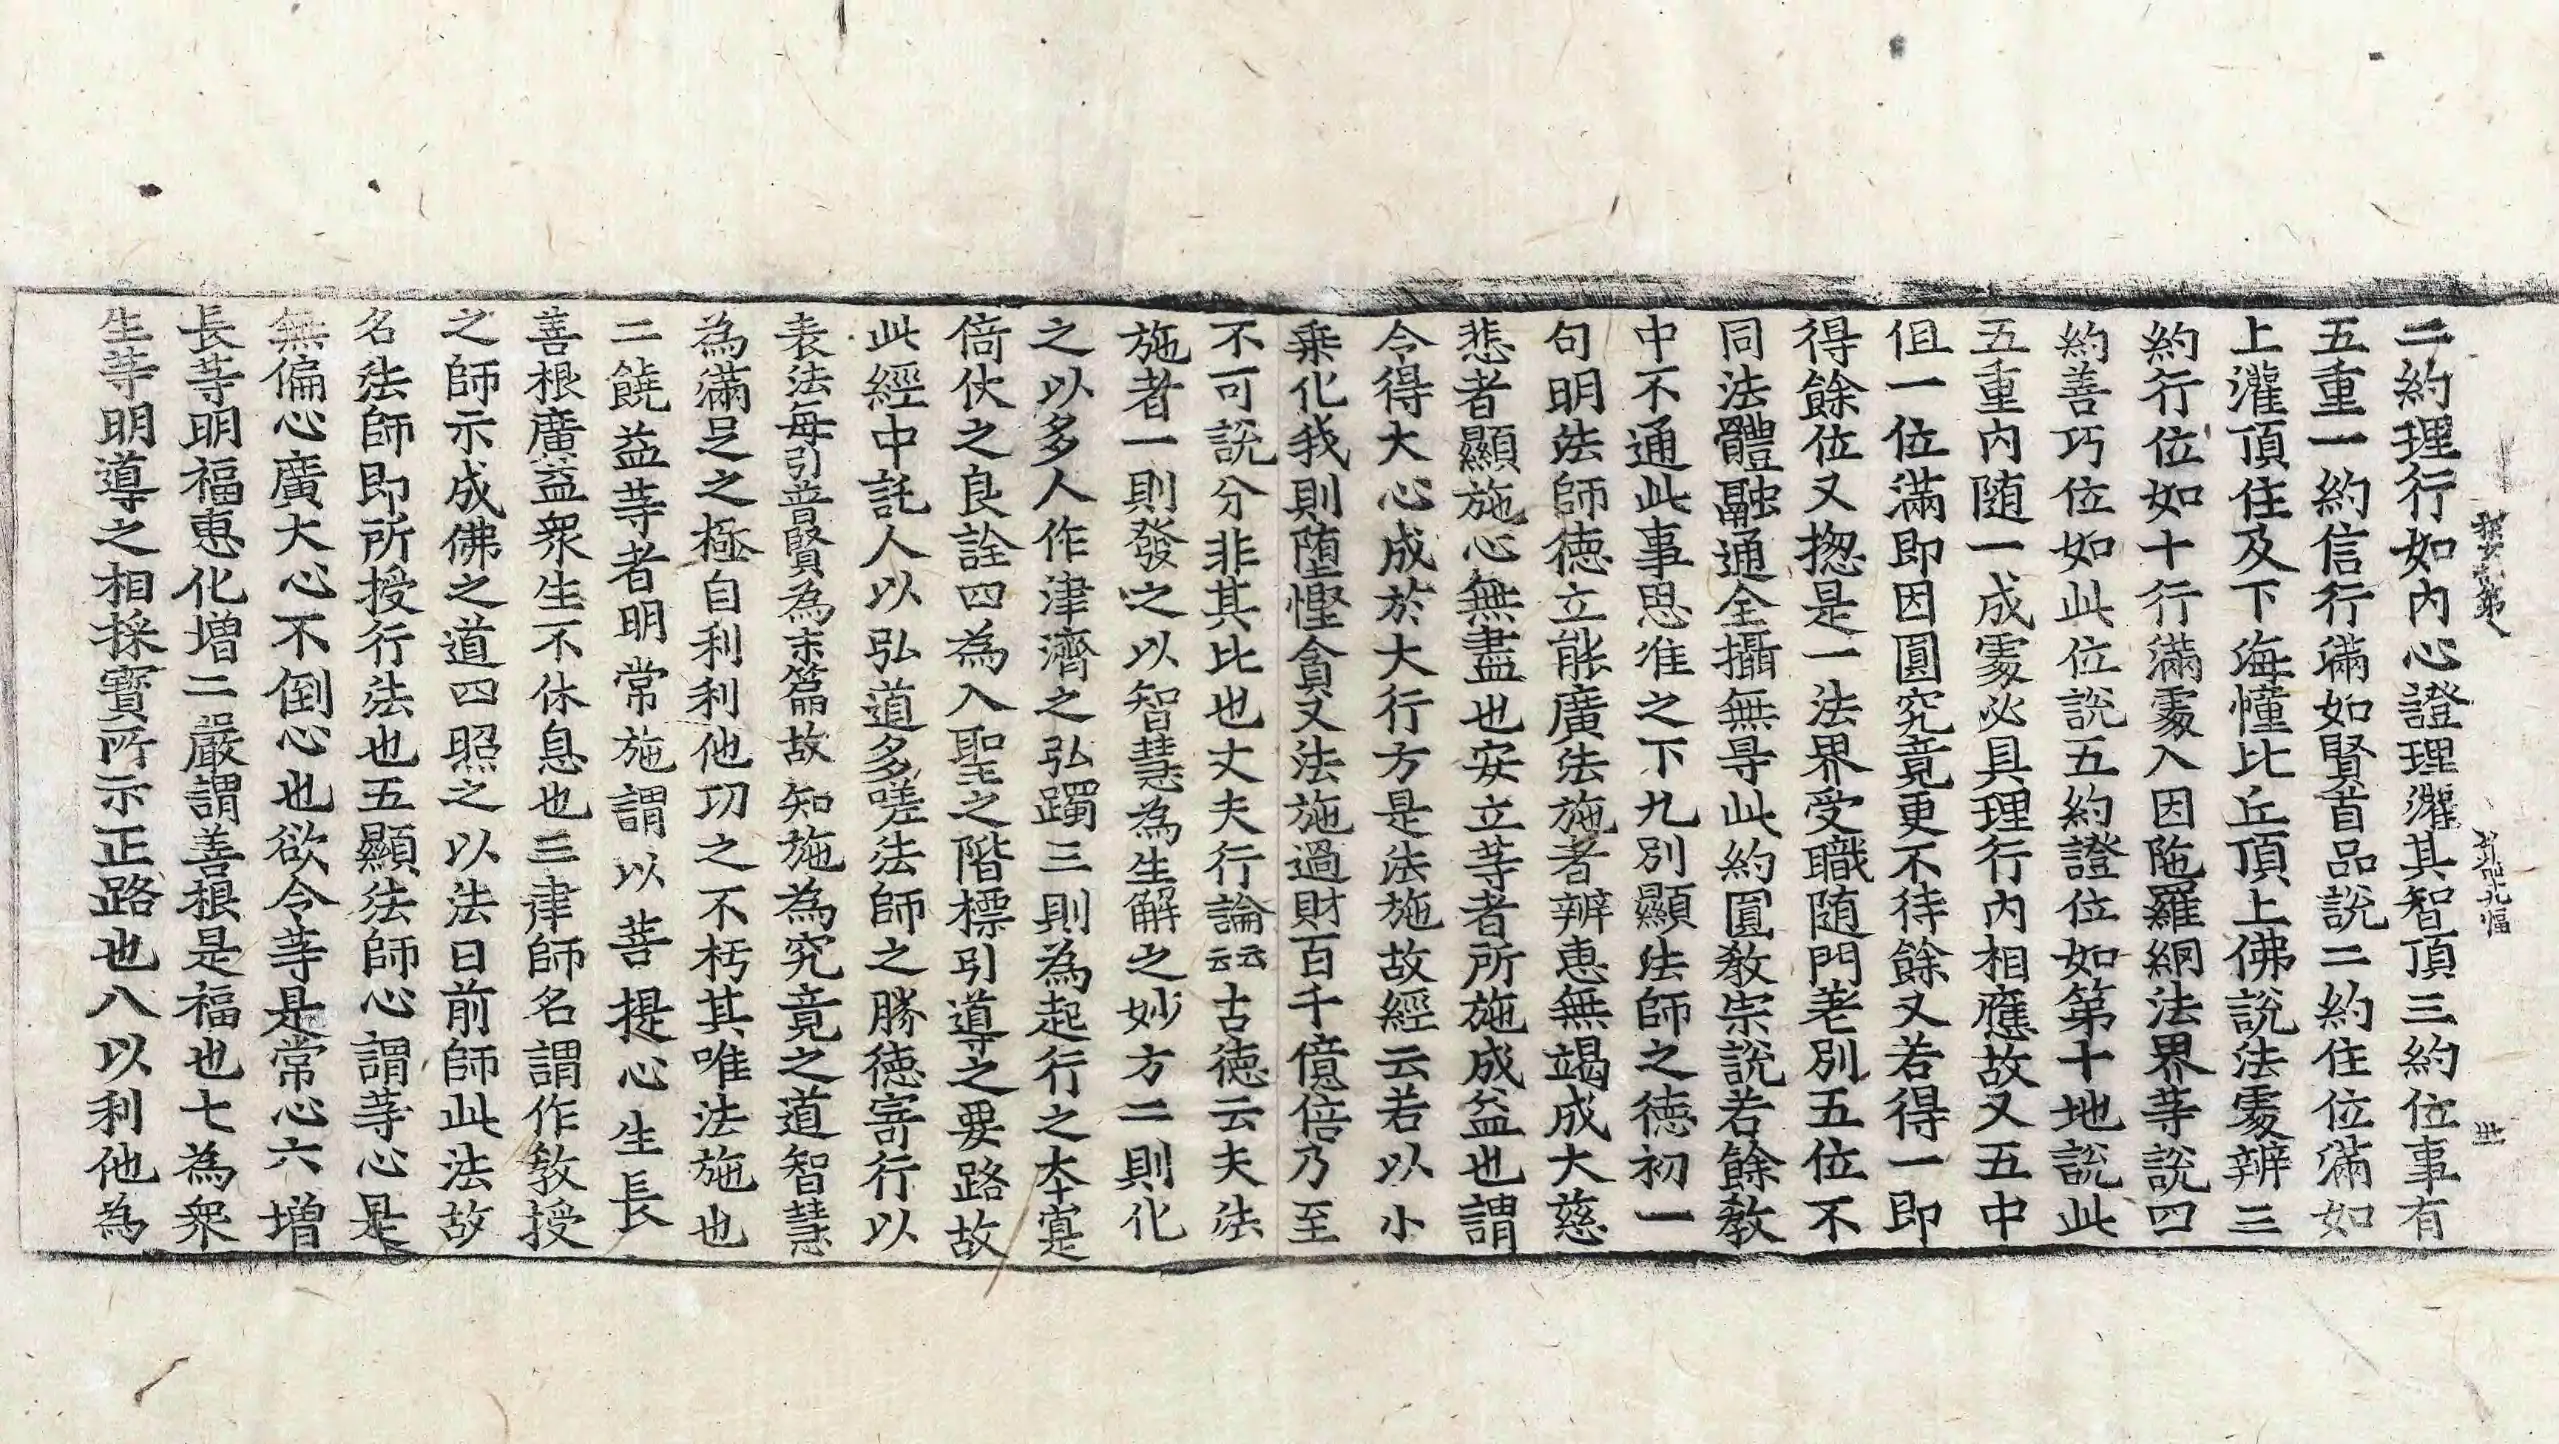 二約理行如內心證理灌其智頂三約位事有
五重一約信行滿如賢首品說二約住位滿如
上灌頂住及下海幢比丘頂上佛說法處辨三
約行位如十行滿處入因陁羅網法界等說四
約善巧位如此位說五約證位如第十地說此
五重內随一成處必具理行內相應故又五中
但一位滿即因圓究竟更不待餘又若得一即
得餘位又揔是一法界受職随門差別五位不
同法體融通全攝無㝵此約圓教宗說若餘教
中不通此事思准之下九別顯法師之德初一
句明法師德立能廣法施者辨恵無竭成大慈
悲者顯施心無盡也安立等者所施成益也謂
令得大心成於大行方是法施故經云若以小
乗化我則墮慳貪又法施過財百千億倍乃至
不可說分非其比也丈夫行論云云古德云夫法
施者一則發之以智慧為生解之妙方二則化
之以多人作津濟之弘躅三則為起行之夲寔
倚伏之良詮四為入聖之階標引導之要路故
此經中託人以弘道多嗟法師之勝徳寄行以
表法每引普賢為末篇故知施為究竟之道智慧
為滿足之極自利利他功之不朽其唯法施也
二饒益等者明常施謂以菩提心生長
善根廣益衆生不休息也三律師名謂作教授
之師示成佛之道四照之以法日前師此法故
名法師即所授行法也五顯法師心謂等心是
無偏心廣大心不倒心也欲令等是常心六增
長等明福恵化增二嚴謂善根是福也七為衆
生等明導之相採寶所示正路也八以利他為